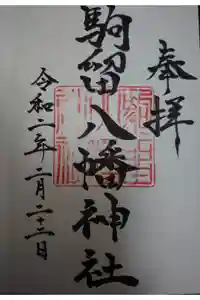 奉拝
駒留八幡神社
令和二年二月二十三日